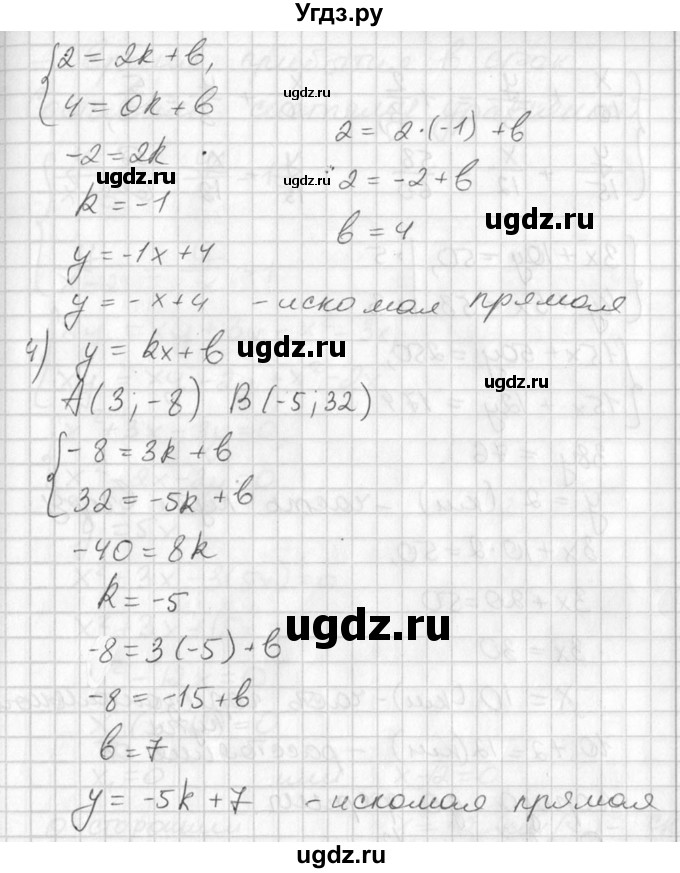 Угдз.ру
{2 = 2k + b,
4 = 0k + b
-2 = 2k
k = -1
2 = 2·(-1) + b
2 = -2 + b
b = 4
y = -1x + 4
y = -x + 4 - искомая прямая
4) y = kx + b
A(3; -8) B(-5; 32)
{-8 = 3k + b
32 = -5k + b
-40 = 8k
k = -5
-8 = 3(-5) + b
-8 = -15 + b
b = 7
y = -5k + 7 - искомая прямая
ugdz.ru
ugdz.ru
ugdz.ru
ugdz.ru
ugdz.ru
ugdz.ru
ugdz.ru
ugdz.ru
ugdz.ru